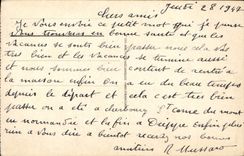 Jeudi 28 8 1947
Chers amis
Je vous envoie ce petit mot qui je pense
vous trouvera en bonne santé et que les
vacances se sont bien passées nous cela va
très bien et les vacances se termine aussi
et nous sommes bien content de rentre a
la maison enfin on a eu du beau temps
depuis le départ et cela est très bien
passé on a été a cherbourg St Come du mont
en normandie et la fin a Dieppe enfin plus
rien a vous dire a bientôt recevez nos bonnes
amitiées R Mussard